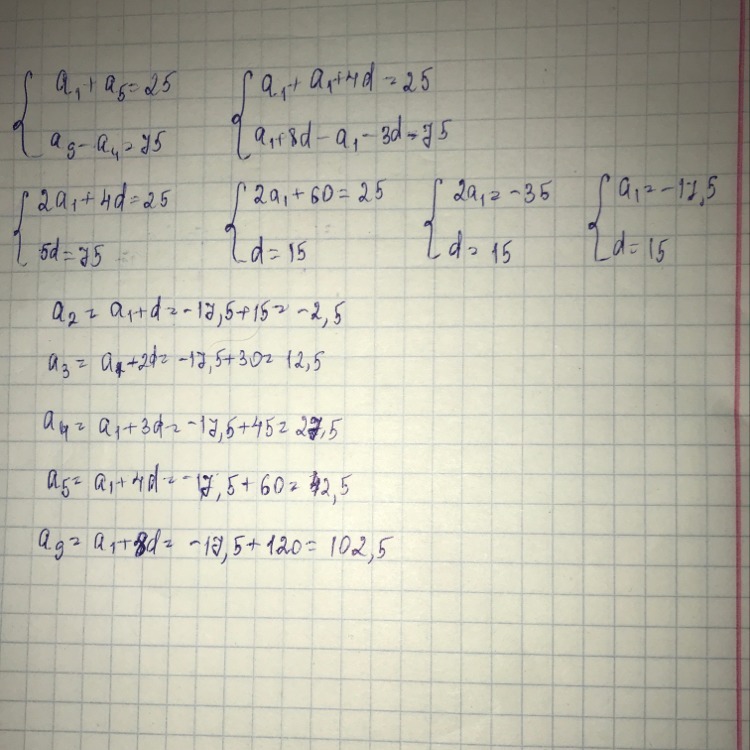 { a₁ + a₅ = 25 { a₁ + a₁ + 4d = 25
a₉ - a₄ = 75 a₁ + 8d - a₁ - 3d = 75
{ 2a₁ + 4d = 25 { 2a₁ + 60 = 25 { 2a₁ = -35 { a₁ = -17,5
5d = 75 d = 15 d = 15 d = 15
a₂ = a₁ + d = -17,5 + 15 = -2,5
a₃ = a₁ + 2d = -17,5 + 30 = 12,5
a₄ = a₁ + 3d = -17,5 + 45 = 27,5
a₅ = a₁ + 4d = -17,5 + 60 = 42,5
a₉ = a₁ + 8d = -17,5 + 120 = 102,5